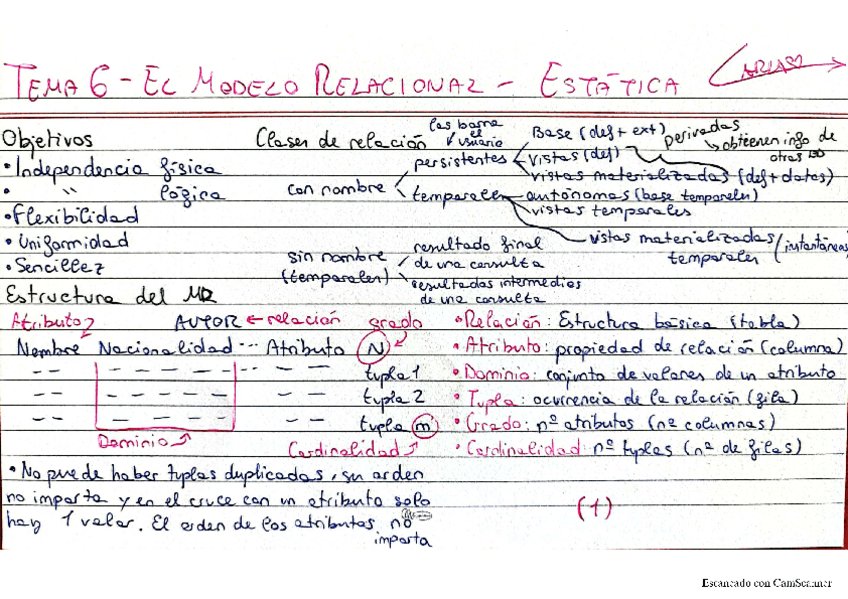 TEMA 6 - EL MODELO RELACIONAL - ESTÁTICA
Objetivos
• Independencia física
• " lógica
• Flexibilidad
• Uniformidad
• Sencillez
Clases de relación
con nombre
persistentes
las borra
el
usuario
Base (def + ext)
vistas (def)
vistas materializadas (def + datos)
obtienen info de
otras BD
temporales
autónomas (base temporales)
vistas temporales
vistas materializadas
temporales
(instantáneas
sin nombre
(temporales)
resultado final
de una consulta
resultados intermedios
de una consulta
Estructura del MR
Atributo
AUTOR ← relación
grado
Nombre Nacionalidad ... Atributo N
tupla 1
tupla 2
tupla m
Dominio
Cardinalidad
• Relación: Estructura básica (tabla)
• Atributo: propiedad de relación (columna)
• Dominio: conjunto de valores de un atributo
• Tupla: ocurrencia de la relación (fila)
• Grado: nº atributos (nº columnas)
• Cardinalidad: nº tuplas (nº de filas)
• No puede haber tuplas duplicadas, su orden
no importa y en el cruce con un atributo solo
hay 1 valor. El orden de los atributos no
importa
(1)
Escaneado con CamScanner